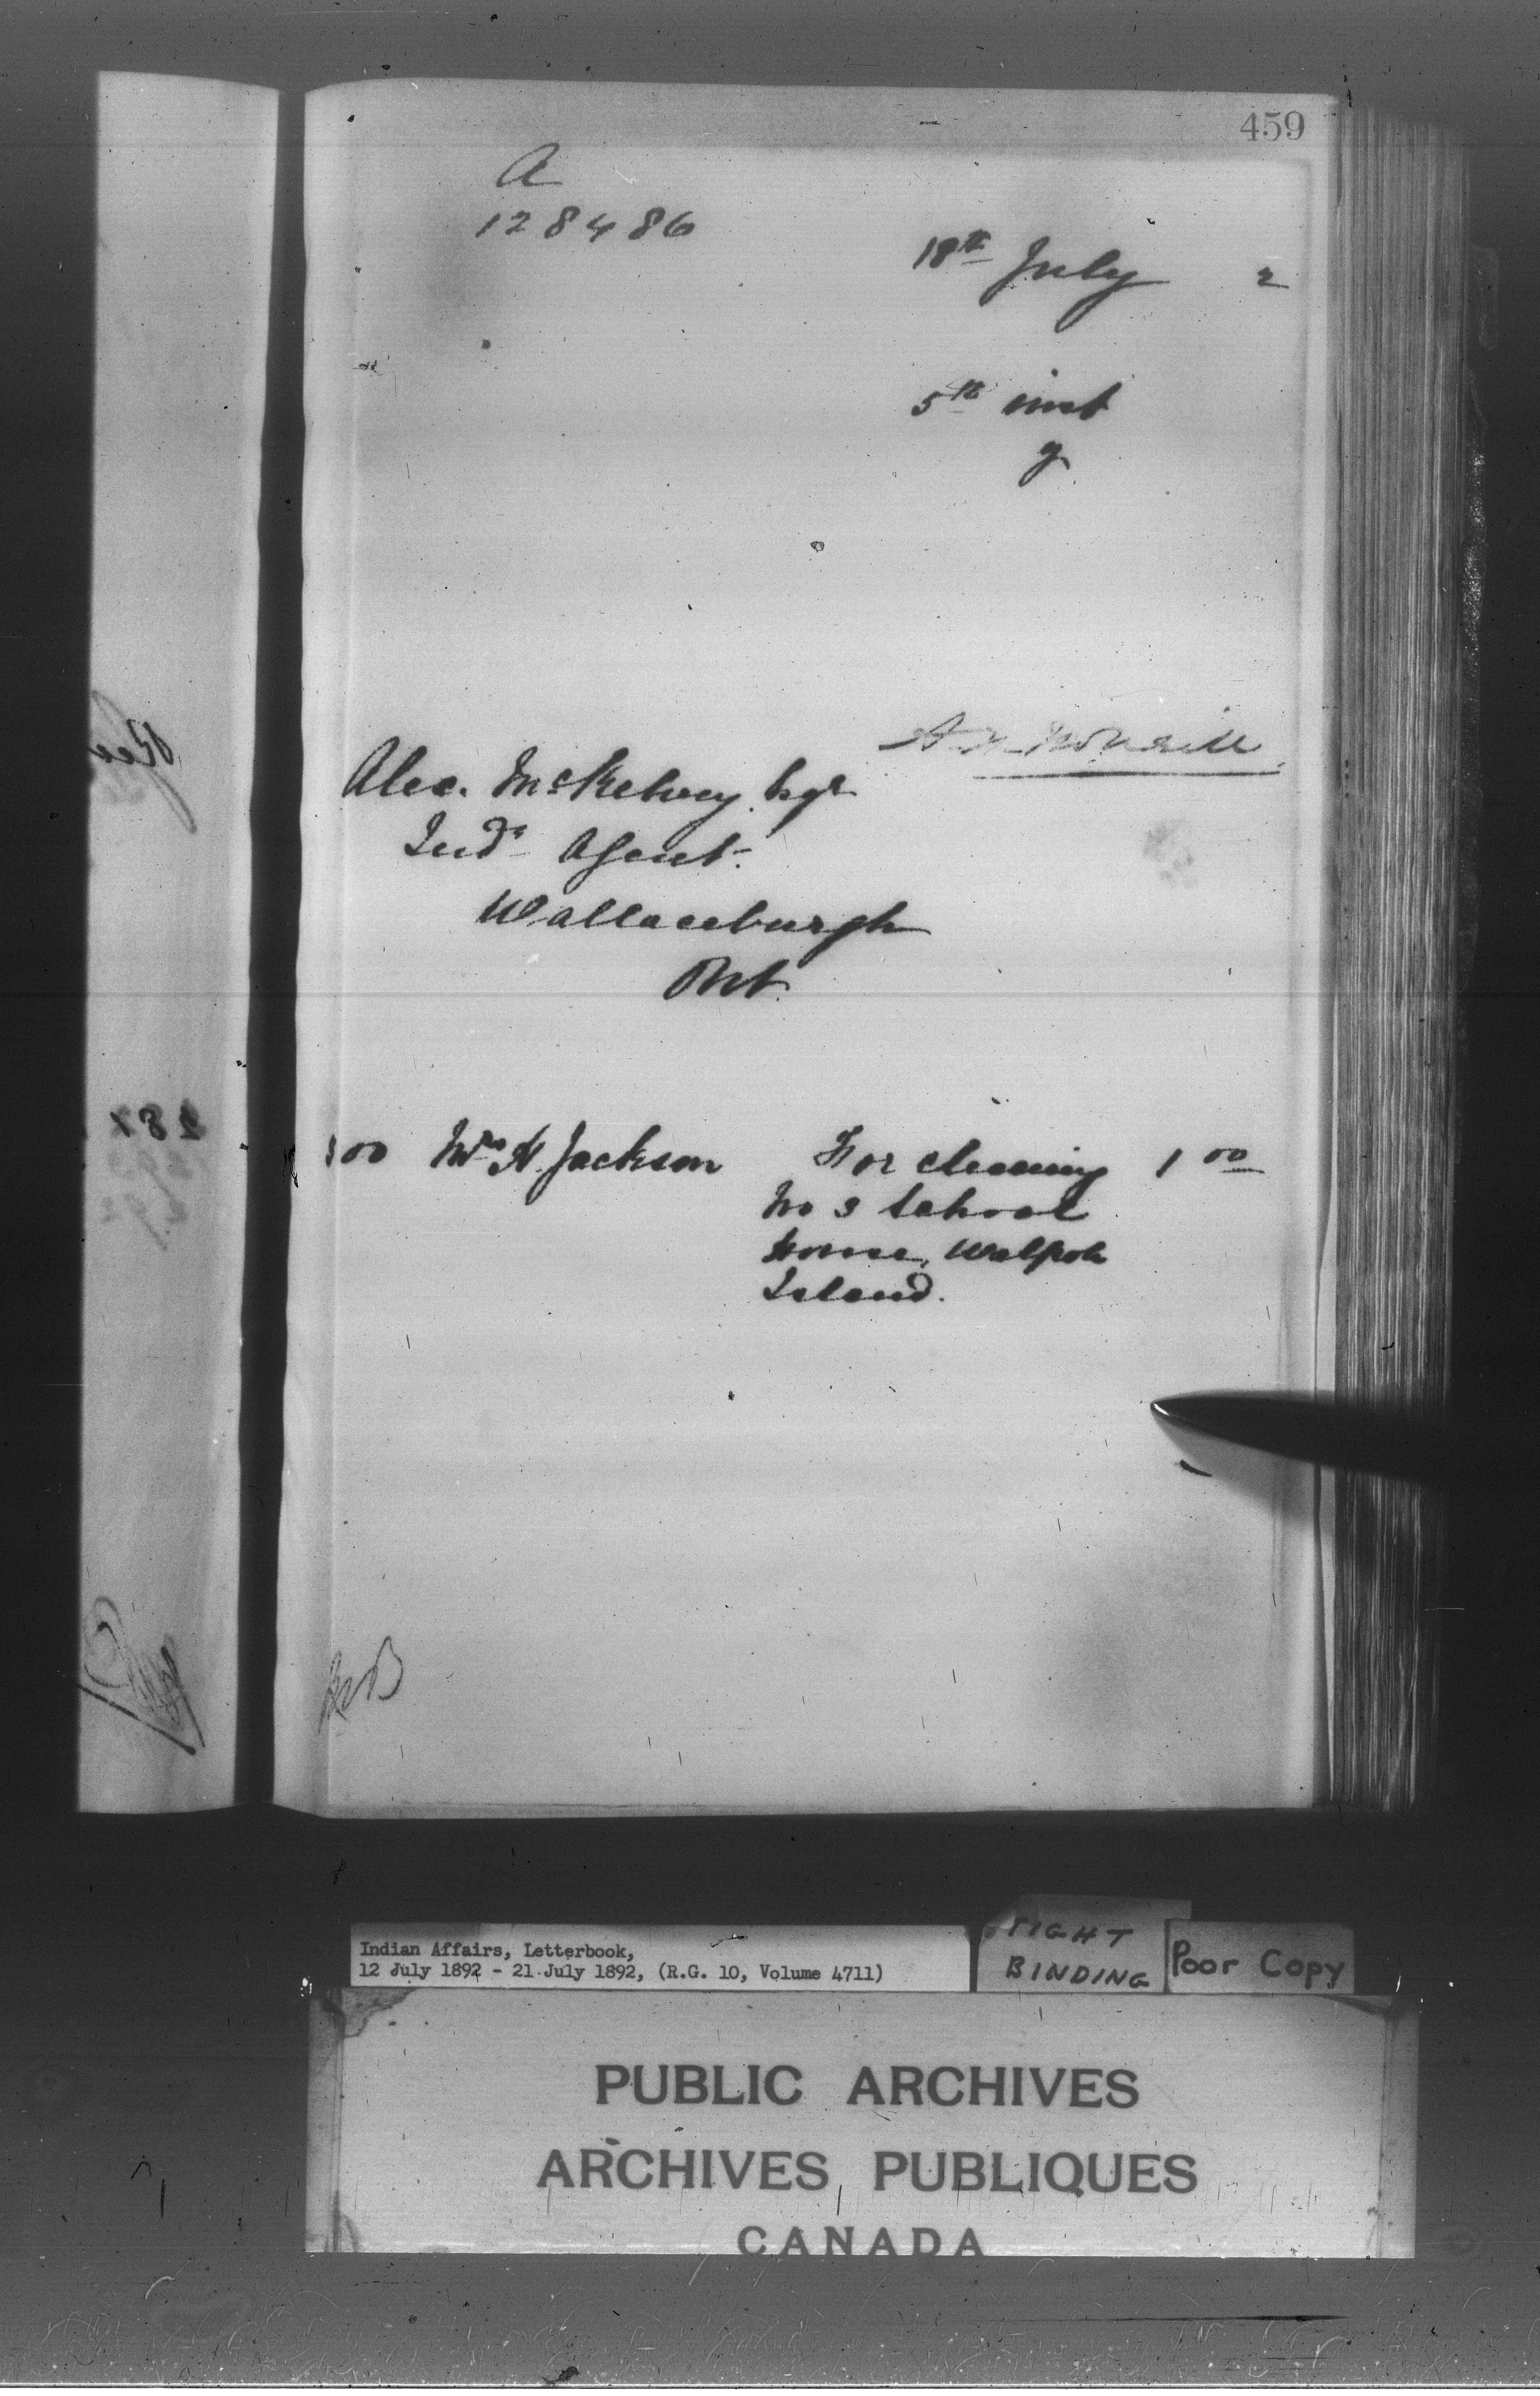 459
A
128486
18th July 2
5th inst
y
Alex. McKelvey Esqr
Indn Agent.
Wallaceburgh
Ont.
00 H. Jackson For cleaning 1 00
No 3 School
house, Walpole
Island.
Indian Affairs, Letterbook,
12 July 1892 - 21 July 1892, (R.G. 10, Volume 4711)
TIGHT
BINDING
Poor Copy
PUBLIC ARCHIVES
ARCHIVES PUBLIQUES
CANADA